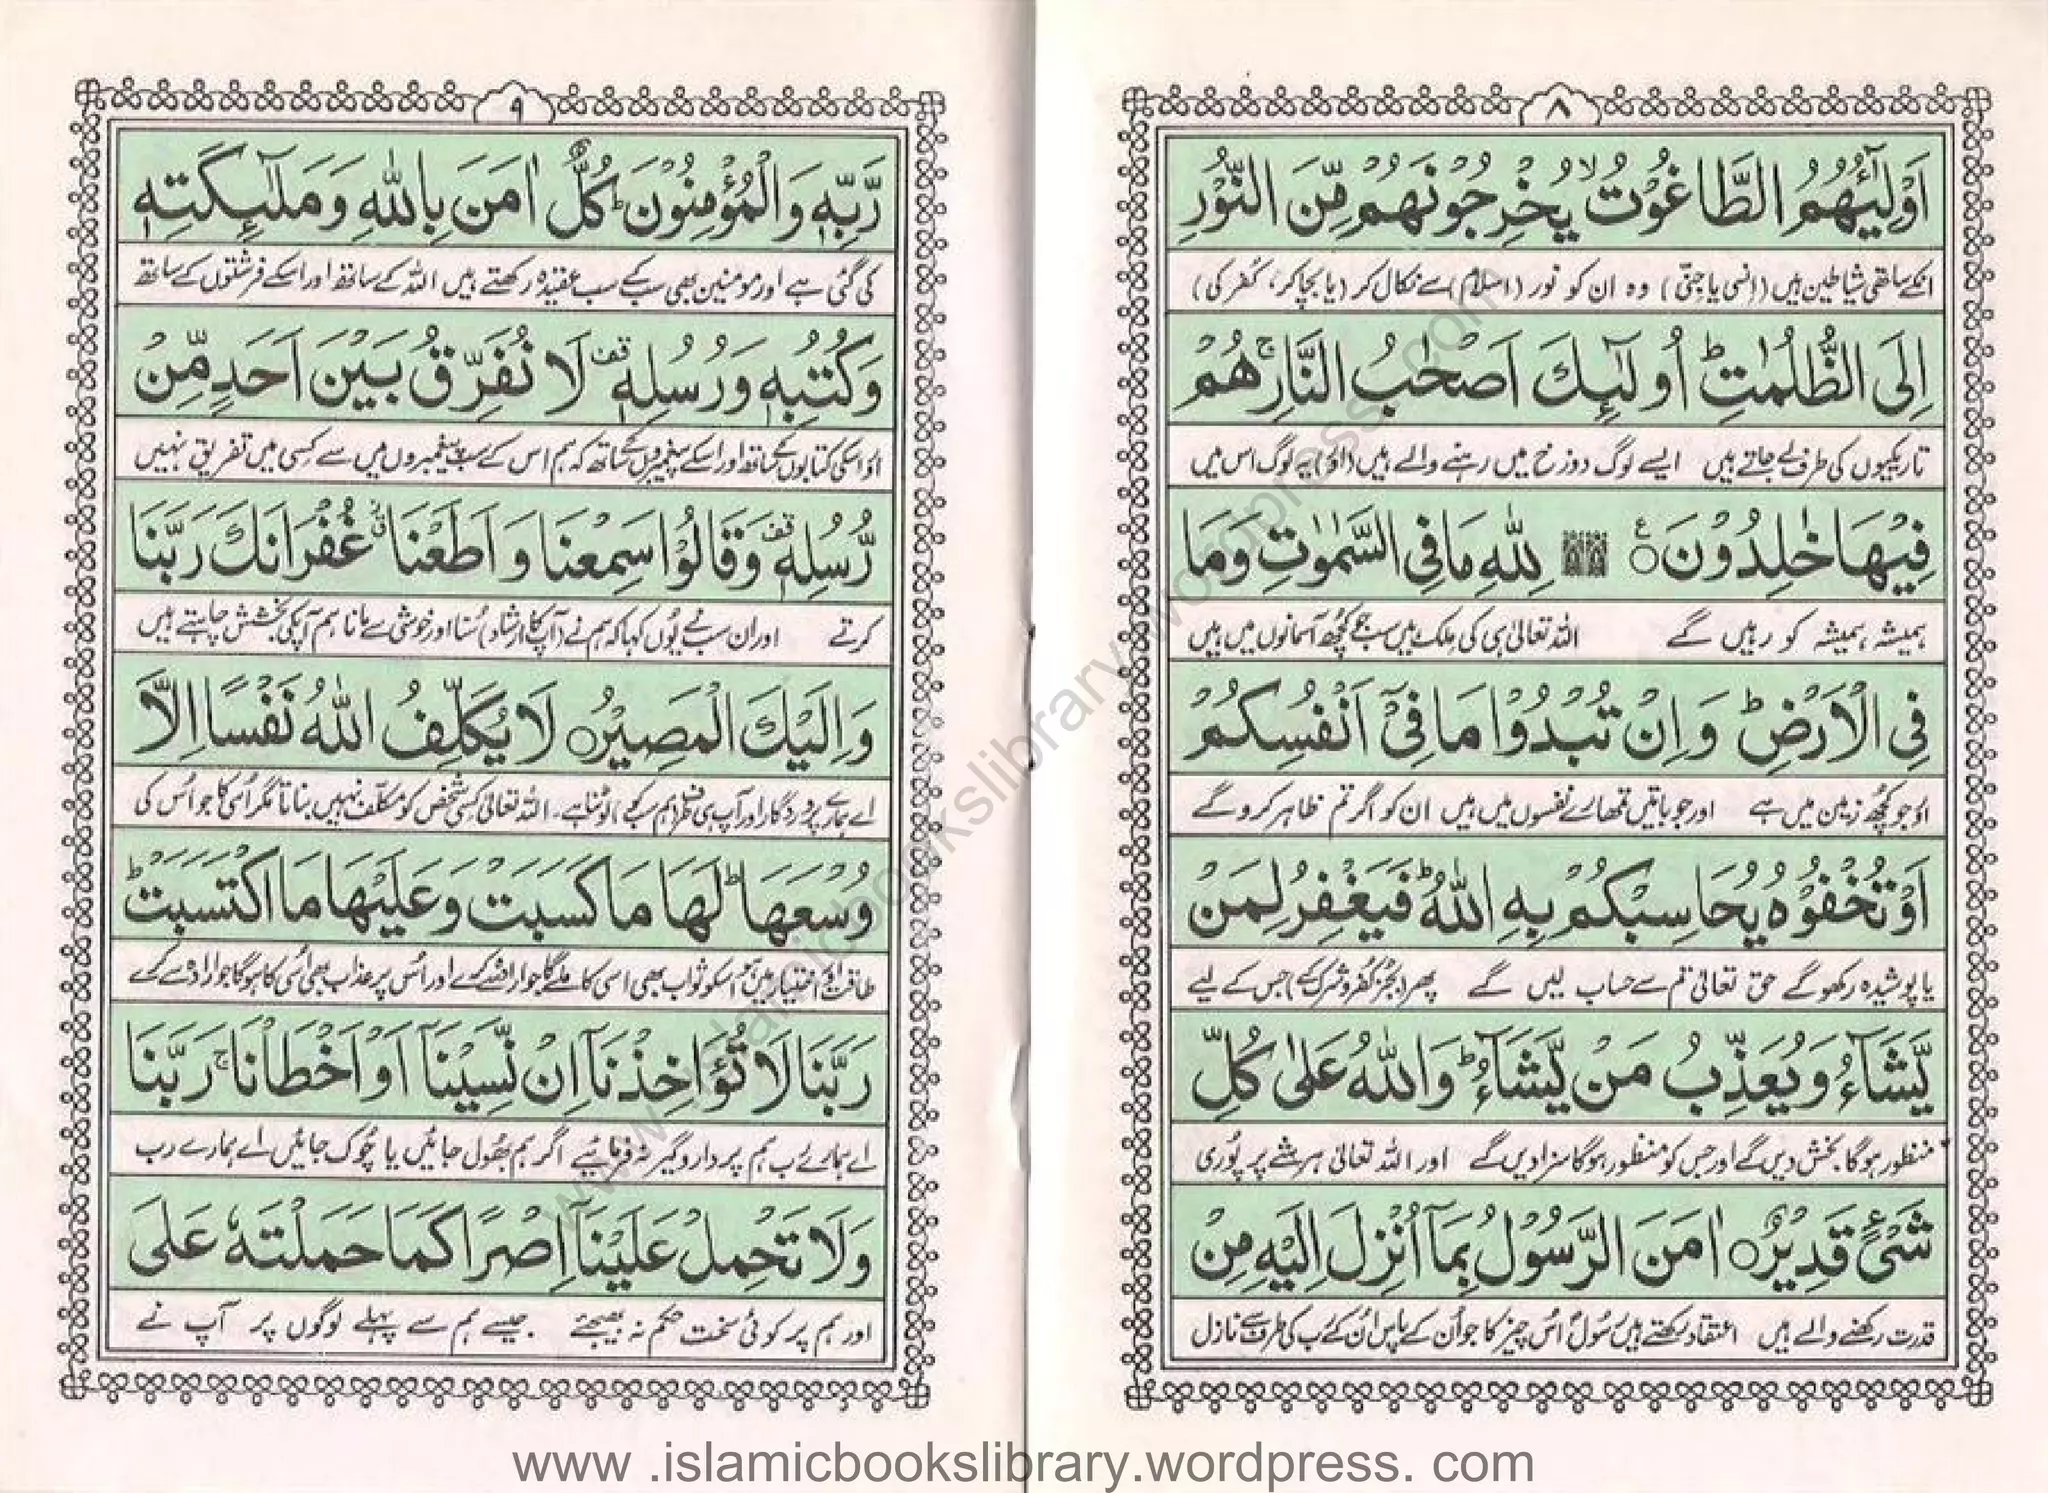 ٨
اَوْلِيٰٓـُٔهُمُ الطَّاغُوْتُ ۙ يُخْرِجُوْنَهُمْ مِّنَ النُّوْرِ
انکے ساتھی شیاطین ہیں (اِنسی یا جِنّی) وہ ان کو نور (اسلام) سے نکال کر (یا بچا کر، کفر کی)
اِلَى الظُّلُمٰتِ ؕ اُولٰٓئِكَ اَصْحٰبُ النَّارِ ۚ هُمْ
تاریکیوں کی طرف لے جاتے ہیں ایسے لوگ دوزخ میں رہنے والے ہیں (اور) یہ لوگ اس میں
فِيْهَا خٰلِدُوْنَ ۧ لِلّٰهِ مَا فِي السَّمٰوٰتِ وَمَا
ہمیشہ ہمیشہ کو رہیں گے اللہ تعالیٰ ہی کی ملک ہیں سب جو کچھ آسمانوں میں ہیں
فِي الْاَرْضِ ؕ وَاِنْ تُبْدُوْا مَا فِيْٓ اَنْفُسِكُمْ
اور جو کچھ زمین میں ہے اور جو باتیں تمھارے نفسوں میں ہیں ان کو اگر تم ظاہر کرو گے
اَوْ تُخْفُوْهُ يُحَاسِبْكُمْ بِهِ اللّٰهُ ؕ فَيَغْفِرُ لِمَنْ
یا پوشیدہ رکھو گے حق تعالیٰ تم سے حساب لیں گے پھر (بجز کفر و شرک کے) جس کے لیے
يَّشَآءُ وَيُعَذِّبُ مَنْ يَّشَآءُ ؕ وَاللّٰهُ عَلٰى كُلِّ
منظور ہوگا بخش دیں گے اور جس کو منظور ہوگا سزا دیں گے اور اللہ تعالیٰ ہر شے پر پوری
شَيْءٍ قَدِيْرٌ ○ اٰمَنَ الرَّسُوْلُ بِمَآ اُنْزِلَ اِلَيْهِ مِنْ
قدرت رکھنے والے ہیں اعتقاد رکھتے ہیں رسول اس چیز کا جو اُن کے پاس اُن کے رب کی طرف سے نازل
٩
رَّبِّهٖ وَالْمُؤْمِنُوْنَ ؕ كُلٌّ اٰمَنَ بِاللّٰهِ وَمَلٰٓئِكَتِهٖ
کی گئی ہے اور مومنین بھی سب کے سب عقیدہ رکھتے ہیں اللہ کے ساتھ اور اسکے فرشتوں کے ساتھ
وَكُتُبِهٖ وَرُسُلِهٖ قف لَا نُفَرِّقُ بَيْنَ اَحَدٍ مِّنْ
اور اسکی کتابوں کے ساتھ اور اسکے پیغمبروں کے ساتھ کہ ہم اس کے سب پیغمبروں میں سے کسی میں تفریق نہیں
رُّسُلِهٖ قف وَقَالُوْا سَمِعْنَا وَاَطَعْنَا غُفْرَانَكَ رَبَّنَا
کرتے اور ان سب نے یوں کہا کہ ہم نے (آپ کا ارشاد) سنا اور خوشی سے مانا ہم آپ کی بخشش چاہتے ہیں
وَاِلَيْكَ الْمَصِيْرُ ○ لَا يُكَلِّفُ اللّٰهُ نَفْسًا اِلَّا
اے ہمارے پروردگار اور آپ ہی کی طرف (ہم سب کو) لوٹنا ہے۔ اللہ تعالیٰ کسی شخص کو مکلف نہیں بناتا مگر اسی کا جو اُس کی
وُسْعَهَا ؕ لَهَا مَا كَسَبَتْ وَعَلَيْهَا مَا اكْتَسَبَتْ ؕ
طاقت اور اختیار میں ہو اسکو ثواب بھی اسی کا ملے گا جو ارادہ سے کرے اور اُس پر عذاب بھی اُسی کا ہوگا جو ارادہ سے کرے
رَبَّنَا لَا تُؤَاخِذْنَآ اِنْ نَّسِيْنَآ اَوْ اَخْطَاْنَا ۚ رَبَّنَا
اے ہمارے رب ہم پر دارو گیر نہ فرمائیے اگر ہم بھول جائیں یا چُوک جائیں اے ہمارے رب
وَلَا تَحْمِلْ عَلَيْنَآ اِصْرًا كَمَا حَمَلْتَهٗ عَلَى
اور ہم پر کوئی سخت حکم نہ بھیجئے جیسے ہم سے پہلے لوگوں پر آپ نے
www .islamicbookslibrary.wordpress. com
www.islamicbookslibrary.wordpress.com